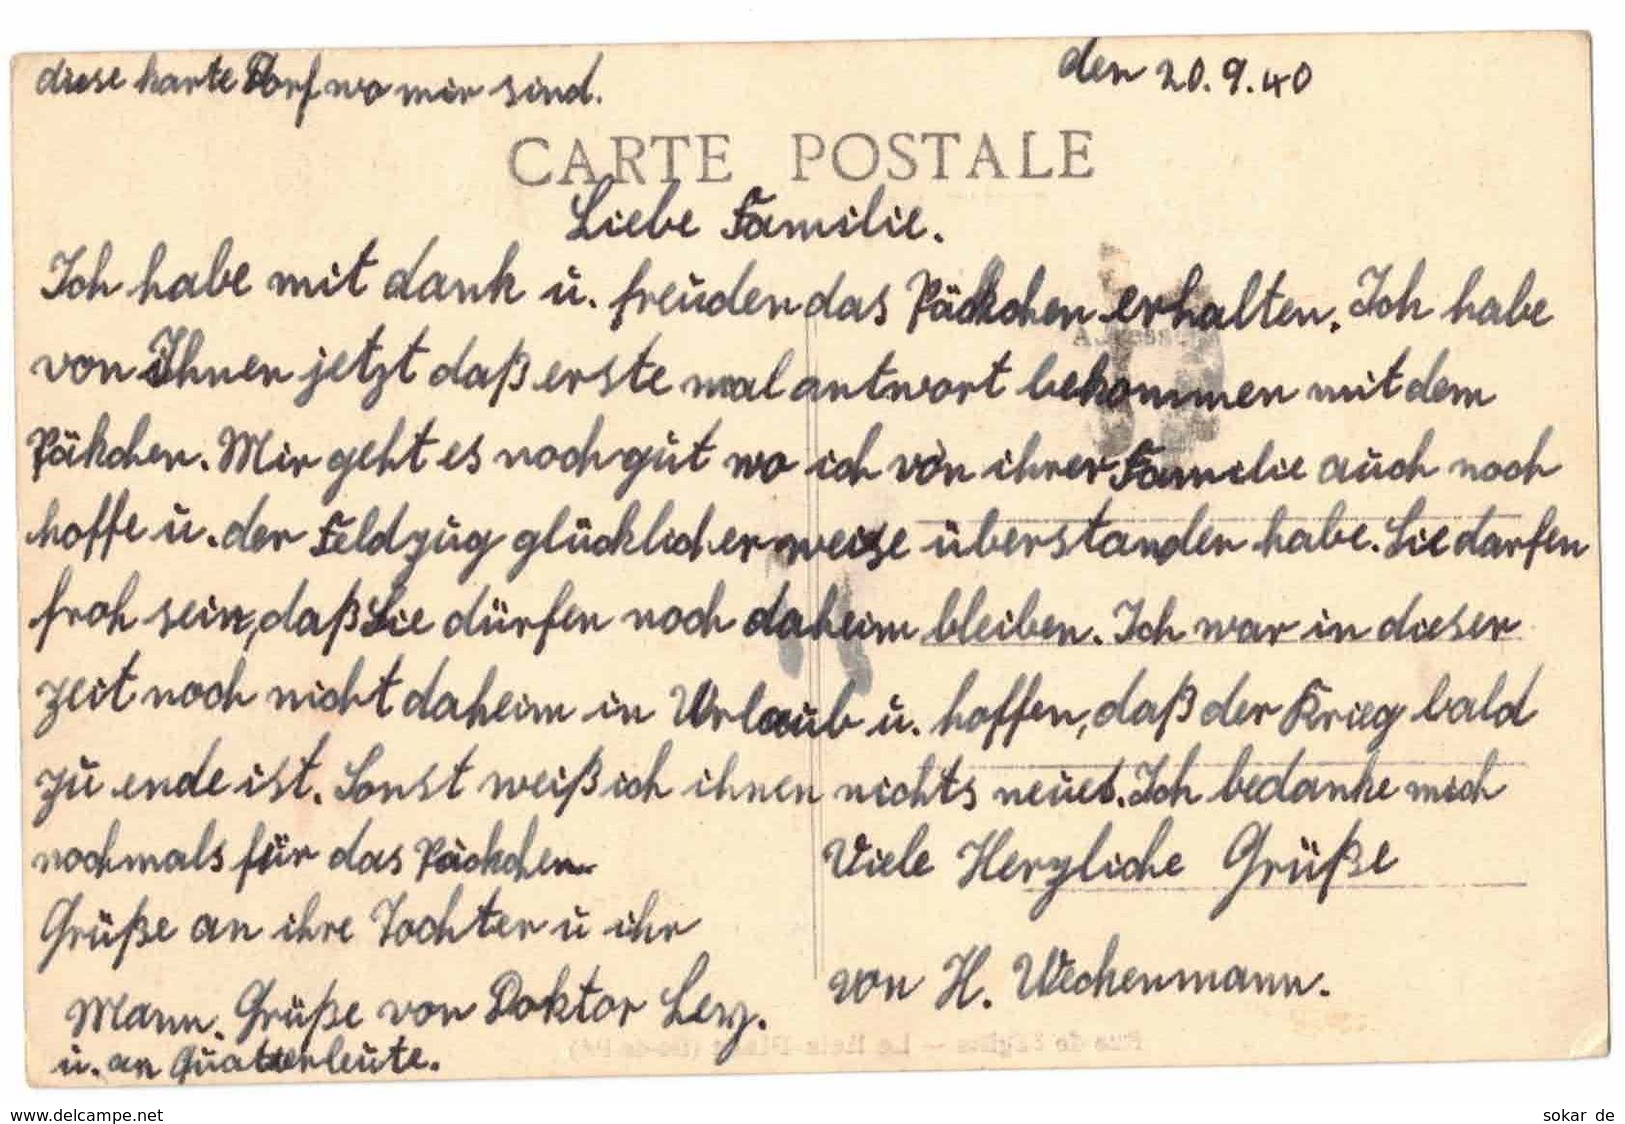 diese karte Dorf wo mir sind.
den 20.9.40
CARTE POSTALE
Liebe Familie.
Ich habe mit dank u. freuden das Päckchen erhalten. Ich habe
von Ihnen jetzt daß erste mal antwort bekommen mit dem
Päkchen. Mir geht es noch gut wo ich von ihrer Familie auch noch
hoffe u. der Feldzug glücklicherweise überstanden habe. Sie darfen
froh sein, daß Sie dürfen noch daheim bleiben. Ich war in dieser
zeit noch nicht daheim in Urlaub u. hoffen, daß der Krieg bald
zu ende ist. Sonst weiß ich ihnen nichts neues. Ich bedanke mich
nochmals für das Päckchen
Viele Herzliche Grüße
Grüße an ihre Tochter u ihr
von H. Weckenmann.
Mann. Grüße von Doktor
u. an
www.delcampe.net
sokar_de